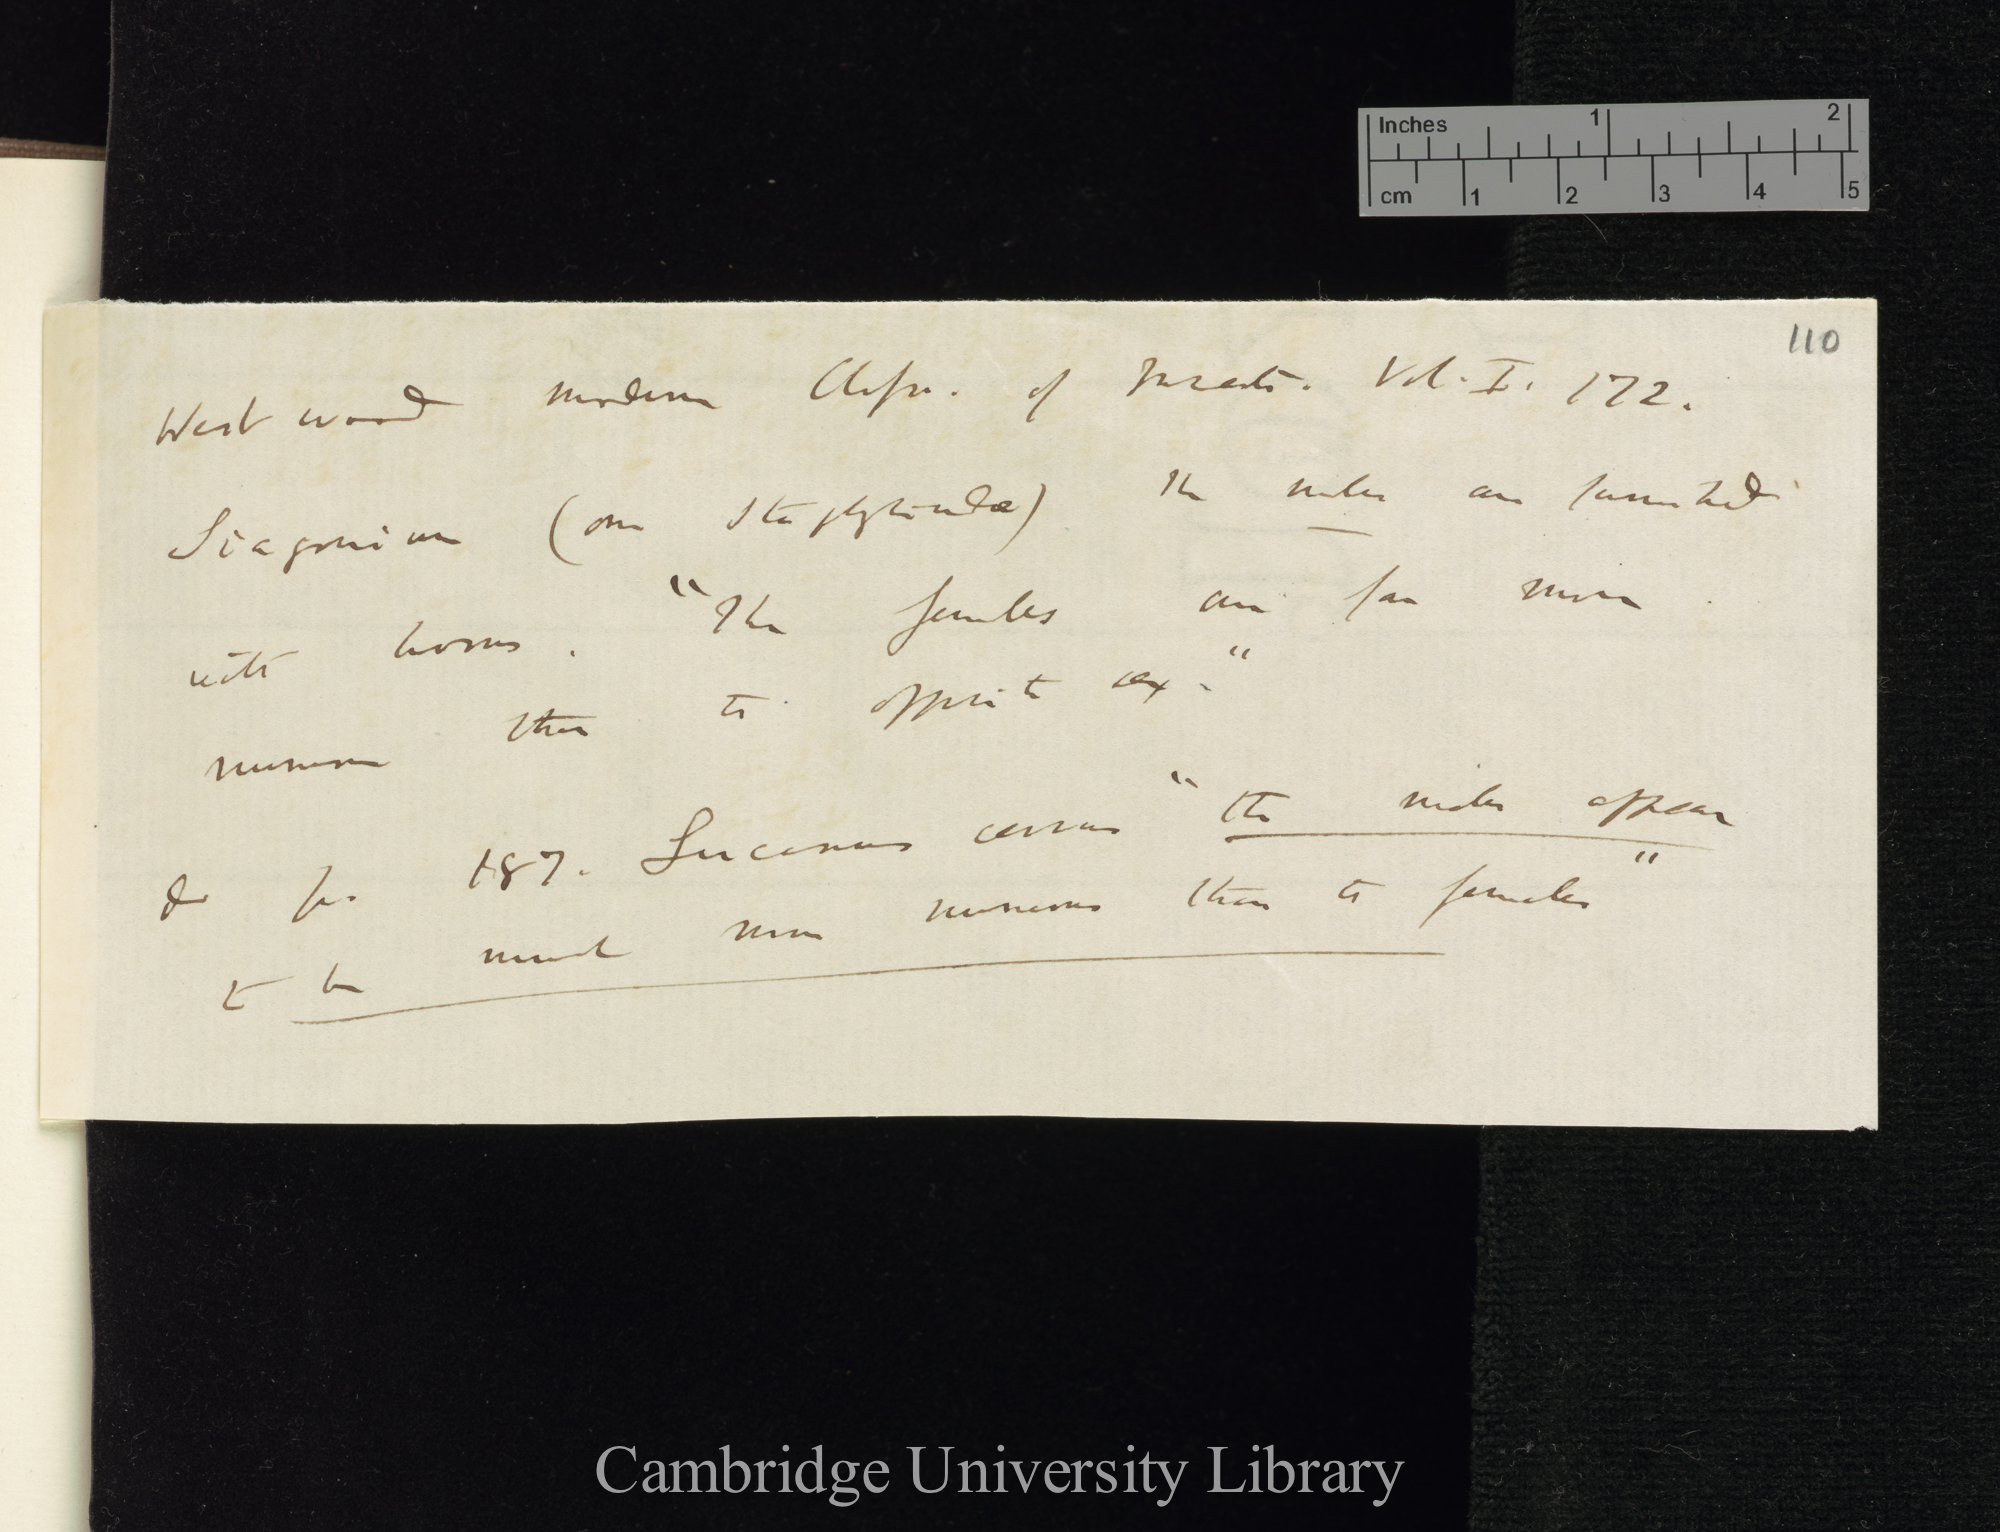 110
Westwood modern Class. of Insects. Vol. I. 172.
Siagonium (one Staphylinidæ) the males are furnished
with horns. "The females are far more
numerous than the opposite sex."
do p. 187. Lucanus cervus "the males appear
to be much more numerous than the females"
Inches 1 2
cm 1 2 3 4 5
Cambridge University Library